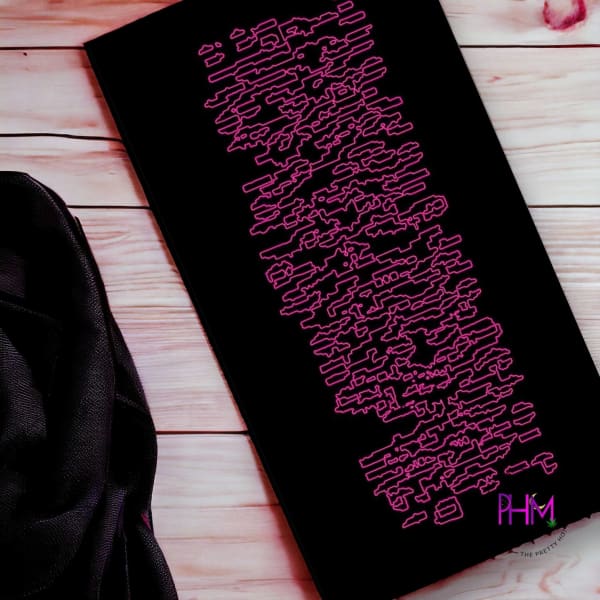 PHM
THE PRETTY HO